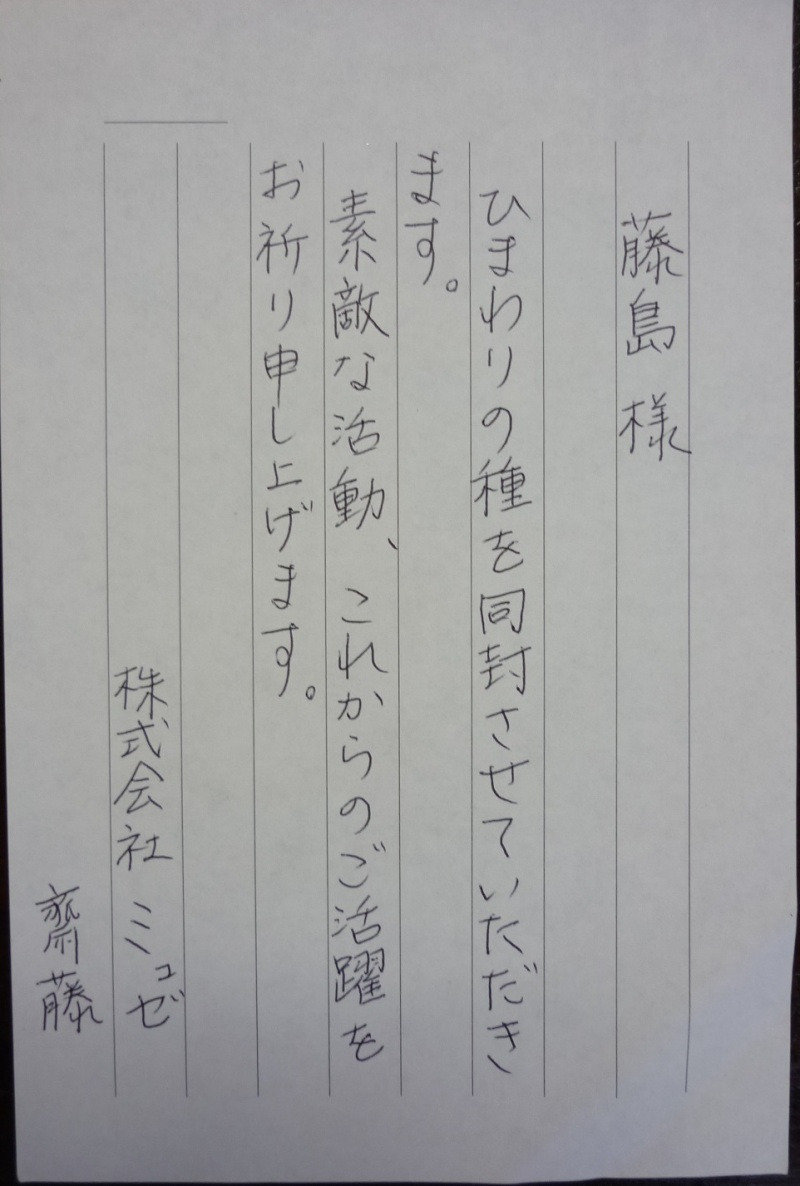 藤島 様
ひまわりの種を同封させていただき
ます。
素敵な活動、これからのご活躍を
お祈り申し上げます。
株式会社 ミュゼ
齋藤